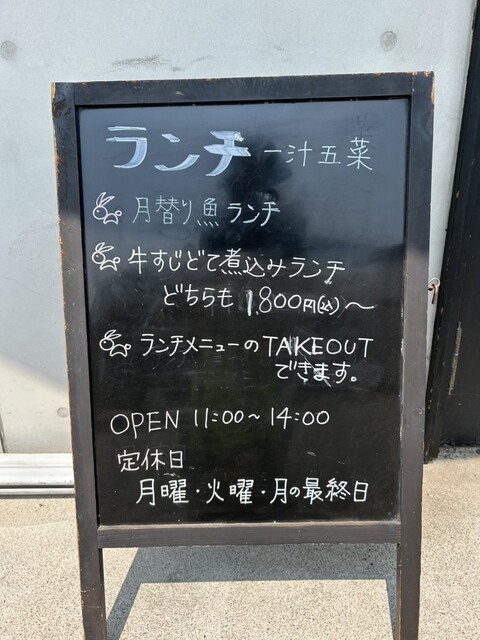 ランチ 一汁五菜
月替り魚ランチ
牛すじどて煮込みランチ
どちらも 1,800円(込)～
ランチメニューのTAKEOUT
できます。
OPEN 11:00～14:00
定休日
月曜・火曜・月の最終日